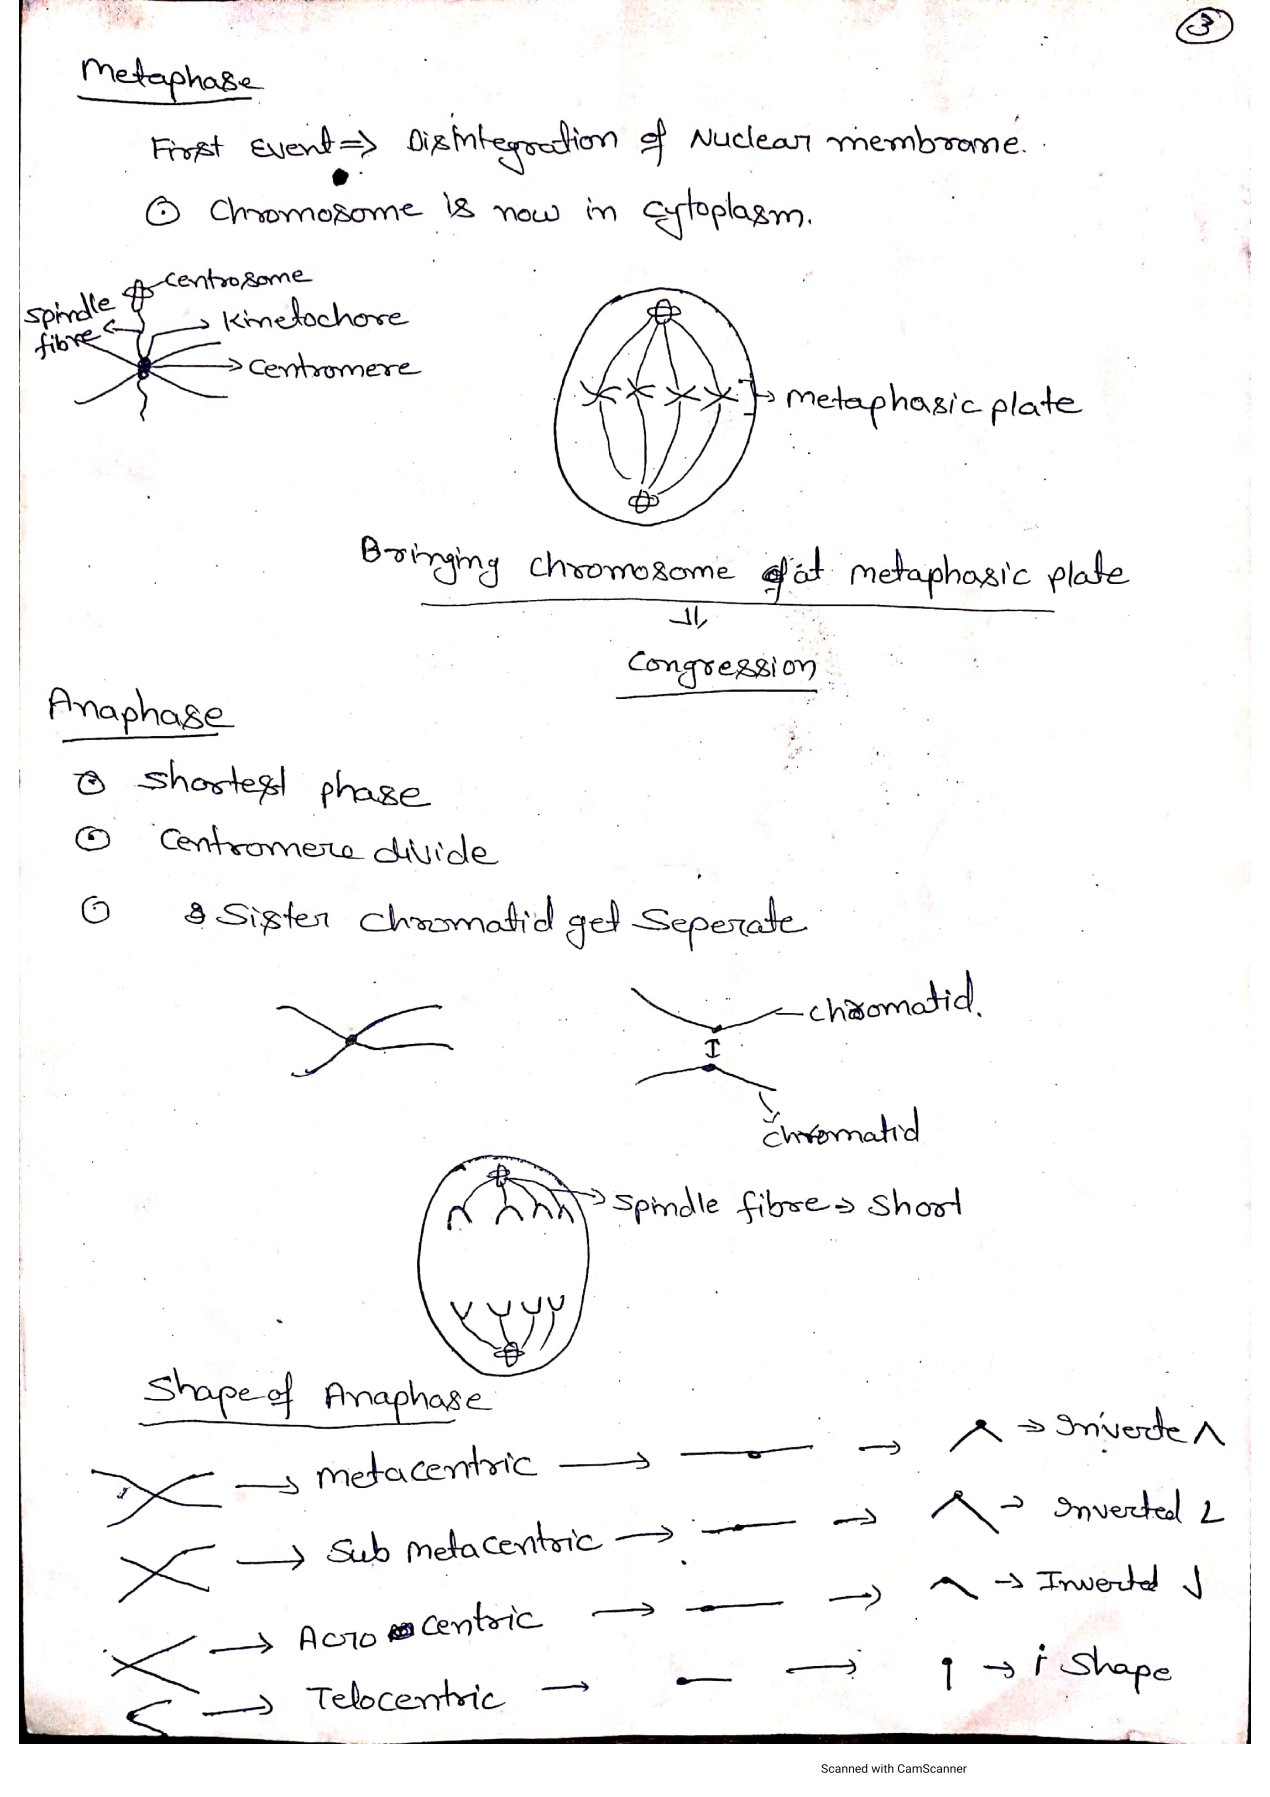 3
Metaphase
First Event ⇒ Disintegration of Nuclear membrane.
⊙ Chromosome is now in cytoplasm.
centrosome
spindle fibre
Kinetochore
Centromere
metaphasic plate
Bringing chromosome at metaphasic plate
⇓
Congression
Anaphase
⊙ Shortest phase
⊙ Centromere divide
⊙ Sister chromatid get Seperate
chromatid.
chromatid
spindle fibre → short
Shape of Anaphase
→ metacentric → → → Inverte Λ
→ Sub metacentric → → → Inverted L
→ Acro centric → → → Inverted J
→ Telocentric → → → i Shape
Scanned with CamScanner